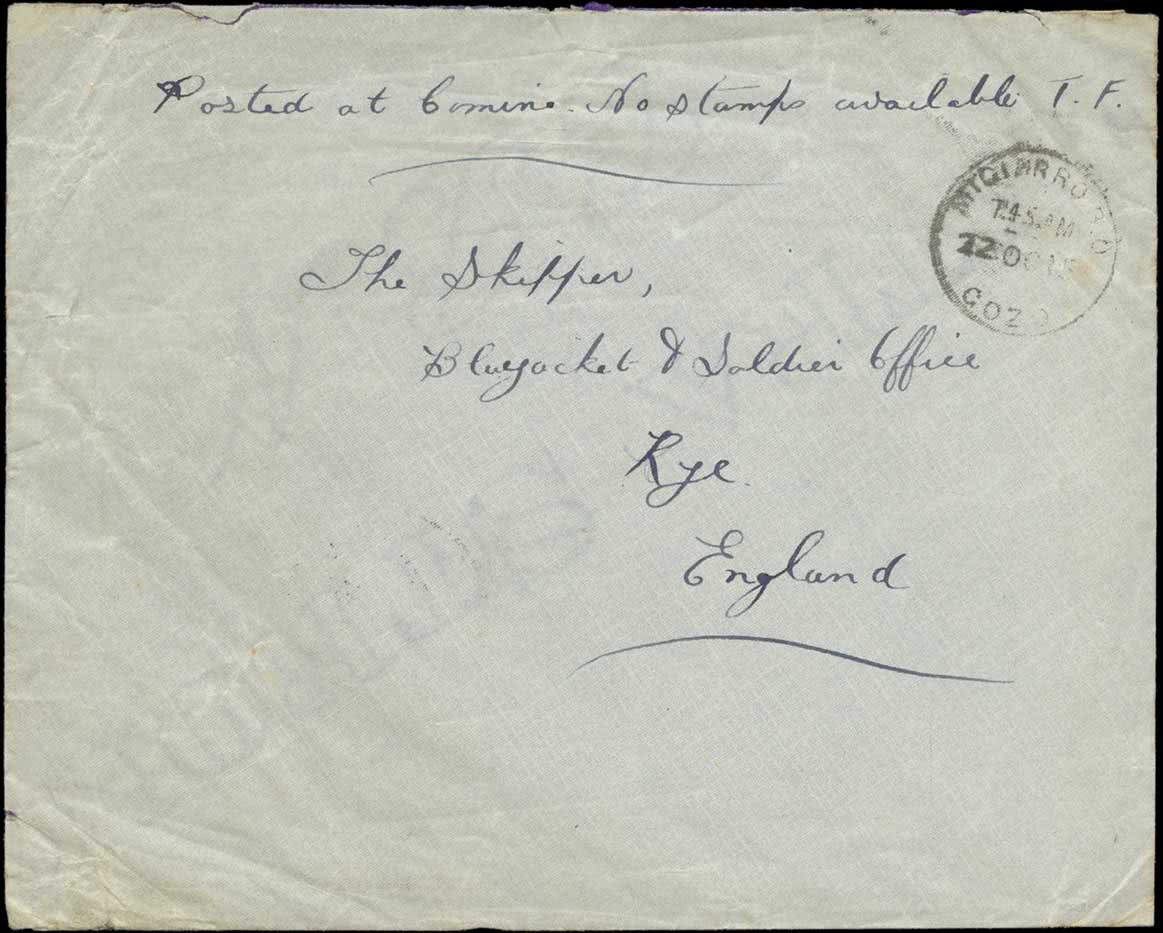 Posted at Comino. No stamps available T. F.
The Skipper,
Bluejacket & Soldier Office
Rye.
England
MIGIARRO RD
7.45 AM
22 OC 15
GOZO